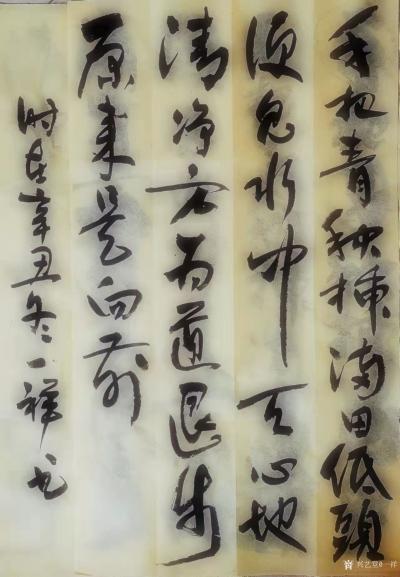 手把青秧插满田低頭
便見水中天心地
清净方为道退步
原来是向前
时在辛丑冬一祥书
兴艺堂@一祥